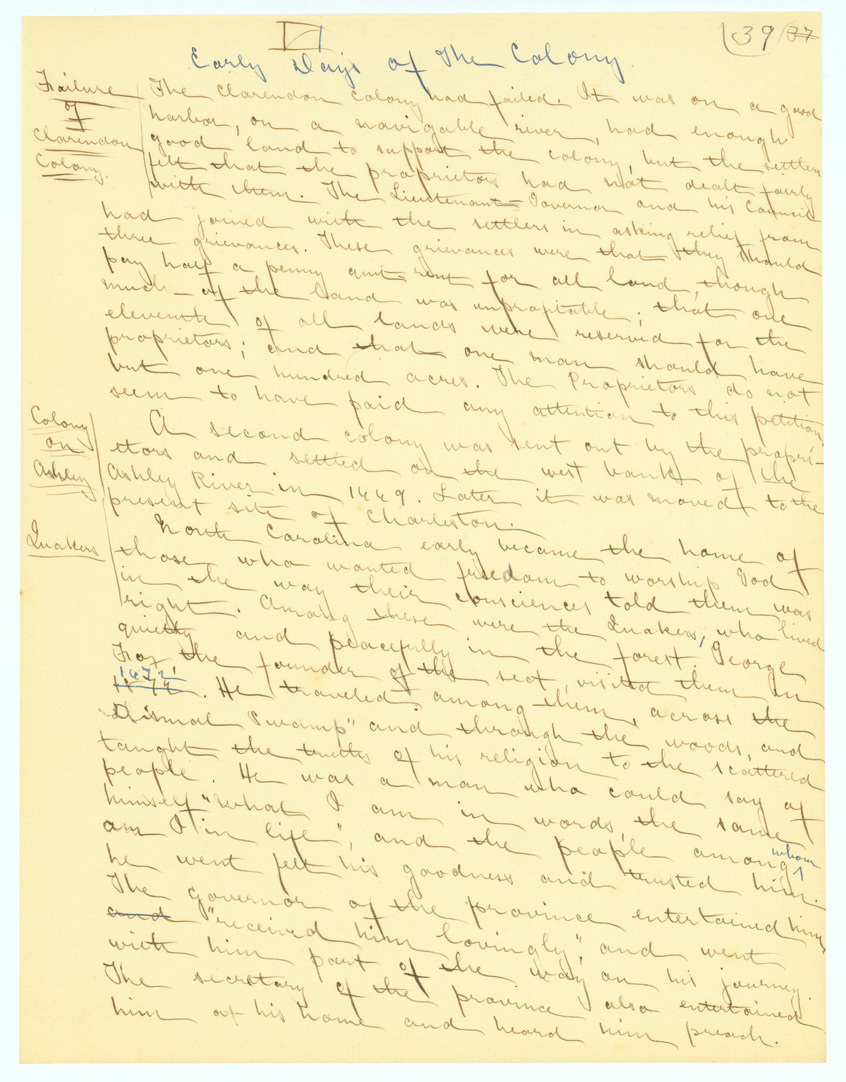 VI
39 37
Early Days of the Colony.
Failure
of
Clarendon
Colony.
The Clarendon Colony had failed. It was on a good
harbor, on a navigable river, had enough
good land to support the colony, but the settlers
felt that the proprietors had not dealt fairly
with them. The Lieutenant-Governor and his Council
had joined with the settlers in asking relief from
three grievances. These grievances were that they should
pay half a penny quit-rent for all land, though
much of the land was unprofitable; that one
elevenths of all lands were reserved for the
proprietors; and that one man should have
but one hundred acres. The Proprietors do not
seem to have paid any attention to this petition.
Colony
on
Ashley
A second colony was sent out by the propri-
etors and settled on the west bank of the
Ashley River in 1669. Later it was moved to the
present site of Charleston.
Quakers
North Carolina early became the home of
those who wanted freedom to worship God
in the way their consciences told them was
right. Among these were the Quakers, who lived
quietly and peacefully in the forest. George
Fox, the founder of the sect, visited them in
1672
1672. He traveled among them, across the
"Dismal Swamp" and through the woods, and
taught the truths of his religion to the scattered
people. He was a man who could say of
himself "What I am in words, the same
am I in life", and the people among whom
he went felt his goodness and trusted him.
The governor of the province entertained him,
and "received him lovingly", and went
with him part of the way on his journey.
The secretary of the province also entertained
him at his home and heard him preach.